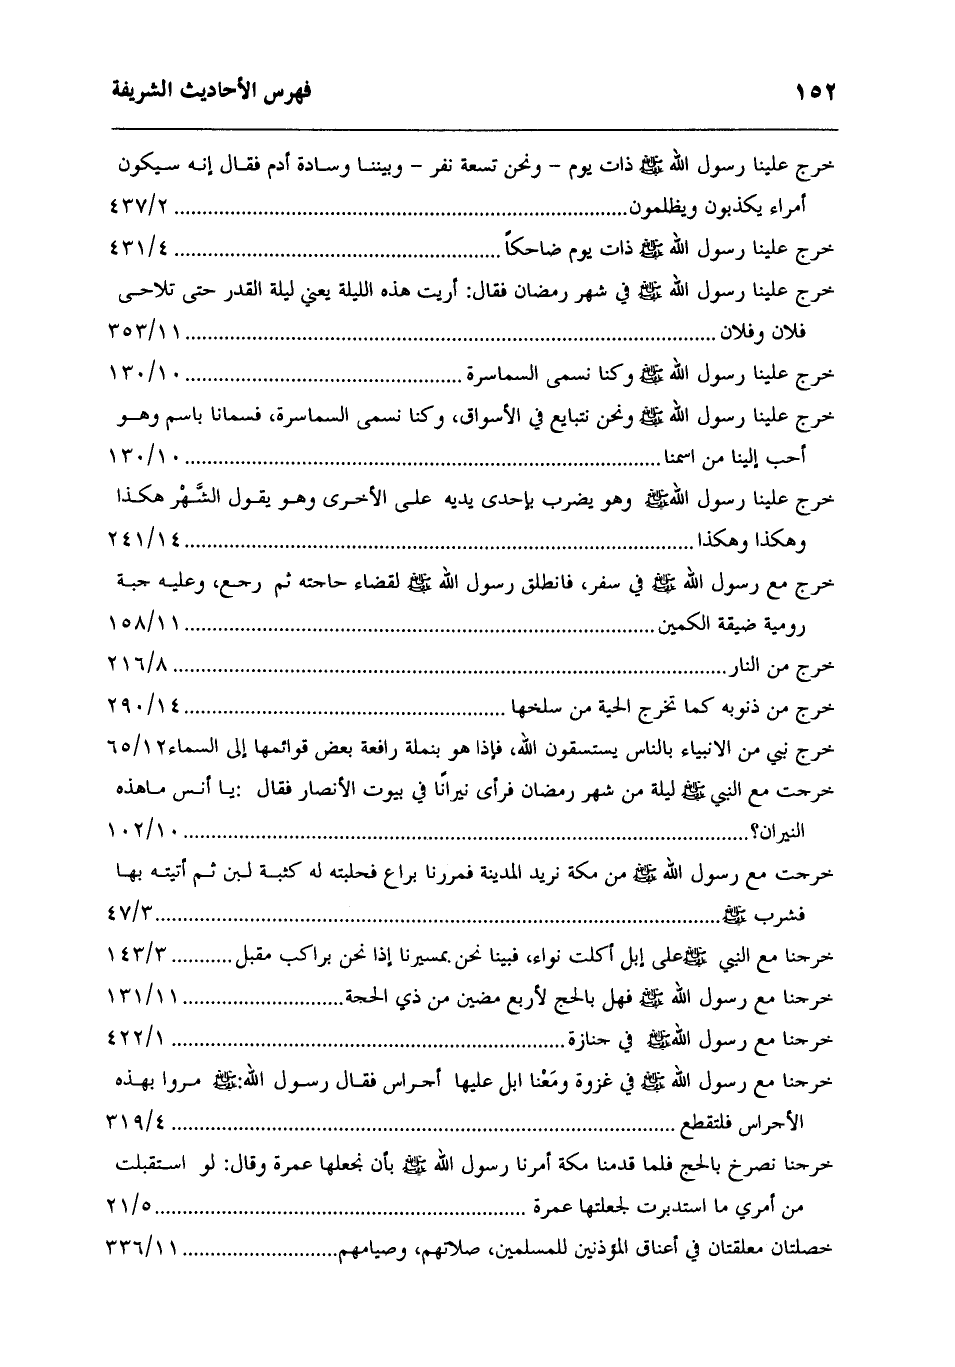 ١٥٢ فهرس الأحاديث الشريفة
خرج علينا رسول الله ﷺ ذات يوم – ونحن تسعة نفر – وبيننا وسادة أدم فقال إنه سيكون
أمراء يكذبون ويظلمون................................................................................ ٤٣٧/٢
خرج علينا رسول الله ﷺ ذات يوم ضاحكاً......................................................... ٤٣١/٤
خرج علينا رسول الله ﷺ في شهر رمضان فقال: أريت هذه الليلة يعني ليلة القدر حتى تلاحى
فلان وفلان............................................................................................. ٣٥٣/١١
خرج علينا رسول الله ﷺ وكنا نسمى السماسرة................................................. ١٣٠/١٠
خرج علينا رسول الله ﷺ ونحن نتبايع في الأسواق، وكنا نسمى السماسرة، فسمانا باسم وهو
أحب إلينا من اسمنا.................................................................................... ١٣٠/١٠
خرج علينا رسول اللهﷺ وهو يضرب بإحدى يديه على الأخرى وهو يقول الشَّهْر هكذا
وهكذا وهكذا.......................................................................................... ٢٤١/١٤
خرج مع رسول الله ﷺ في سفر، فانطلق رسول الله ﷺ لقضاء حاجته ثم رجع، وعليه جبة
رومية ضيقة الكمين................................................................................... ١٥٨/١١
خرج من النار.......................................................................................... ٢١٦/٨
خرج من ذنوبه كما تخرج الحية من سلخها......................................................... ٢٩٠/١٤
خرج نبي من الانبياء بالناس يستسقون الله، فإذا هو بنملة رافعة بعض قوائمها إلى السماء٦٥/١٢
خرجت مع النبي ﷺ ليلة من شهر رمضان فرأى نيرانًا في بيوت الأنصار فقال :يا أنس ماهذه
النيران؟.................................................................................................. ١٠٢/١٠
خرجت مع رسول الله ﷺ من مكة نريد المدينة فمررنا براع فحلبته له كثبة لبن ثم أتيته بها
فشرب ﷺ................................................................................................ ٤٧/٣
خرجنا مع النبي ﷺعلى إبل أكلت نواء، فبينا نحن بمسيرنا إذا نحن براكب مقبل........... ١٤٣/٣
خرجنا مع رسول الله ﷺ فهل بالحج لأربع مضين من ذي الحجة............................. ١٣١/١١
خرجنا مع رسول اللهﷺ في جنازة.................................................................... ٤٢٢/١
خرجنا مع رسول الله ﷺ في غزوة ومَعْنا ابل عليها أجراس فقال رسول الله:ﷺ مروا بهذه
الأجراس فلتقطع...................................................................................... ٣١٩/٤
خرجنا نصرخ بالحج فلما قدمنا مكة أمرنا رسول الله ﷺ بأن نجعلها عمرة وقال: لو استقبلت
من أمري ما استدبرت لجعلتها عمرة................................................................. ٢١/٥
خصلتان معلقتان في أعناق المؤذنين للمسلمين، صلاتهم، وصيامهم........................... ٣٣٦/١١